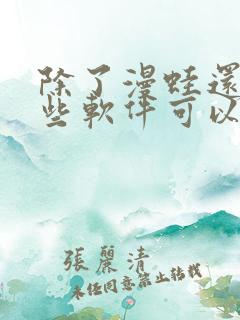 除了漫蛙還
些軟件可以
張麗清
未经同意禁止转载